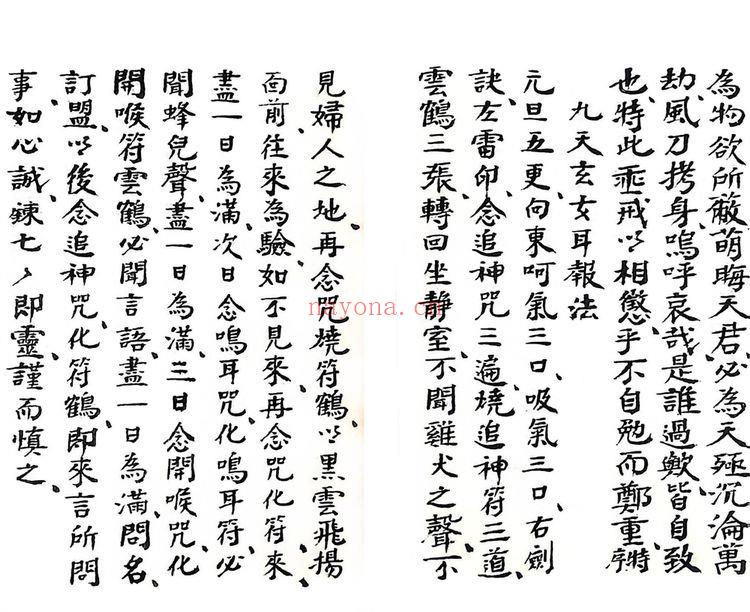 為物欲所蔽萌晦天君必為天殛沉淪萬
劫風刀拷身嗚呼哀哉是誰過歟皆自致
也特此垂戒以相懲乎不自勉而鄭重特序
九天玄女耳報法
元旦五更向東呵氣三口、吸氣三口、右劍
訣、左雷印、念追神咒三遍、燒追神符三道、
雲鶴三張、轉回坐靜室、不聞雞犬之聲、不
見婦人之地、再念咒燒符鶴、以黑雲飛揚
面前、往來為驗、如不見來、再念咒化符、來
盡一日為滿、次日念鳴耳咒、化鳴耳符、必
聞蜂兒聲、盡一日為滿、三日念開喉咒、化
開喉符雲鶴、必聞言語、盡一日為滿、問名、
訂盟、以後念追神咒、化符鶴、即來言所問
事、如心誠、鍊七々即靈、謹而慎之、
nayona.cn